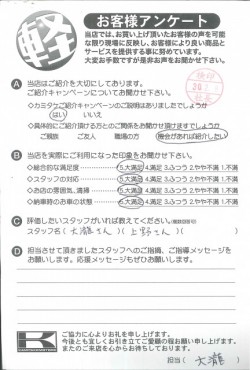 軽
お客様アンケート
当店では、お買い上げ頂いたお客様の声を可能
な限り現場に反映し、お客様により良い商品と
サービスを提供する事に努めています。
大変お手数ですが是非お声をお聞かせ下さい。
A 当店はご紹介を大切にしております。
ご紹介キャンペーンについてお聞かせ下さい。
◇カミタケご紹介キャンペーンのご説明はありましたでしょうか
はい いいえ
◇具体的にご紹介頂ける方とのご関係をお聞かせ頂けますでしょうか
ご親族 ご友人 職場の方 機会があれば紹介したい
B 当店を実際にご利用になった印象をお聞かせ下さい。
◇総合的な満足度 5.大満足 4.満足 3.ふつう 2.やや不満 1.不満
◇スタッフの対応 5.大満足 4.満足 3.ふつう 2.やや不満 1.不満
◇お店の雰囲気、清掃 5.大満足 4.満足 3.ふつう 2.やや不満 1.不満
◇納車時のお車の状態 6.大満足 4.満足 3.ふつう 2.やや不満 1.不満
C 評価したいスタッフがいれば教えてください。
スタッフ名( 大瀧さん )( 上野さん )
D 担当させて頂きましたスタッフへのご指摘、ご指導メッセージを
お願いします。応援メッセージもぜひお願いします。
K
ご協力に心よりお礼を申し上げます。
今後とも宜しくお引き立てご愛顧の程お願い申し上げます。
またのご来店を心からお待ちしております。
担当( 大瀧 )